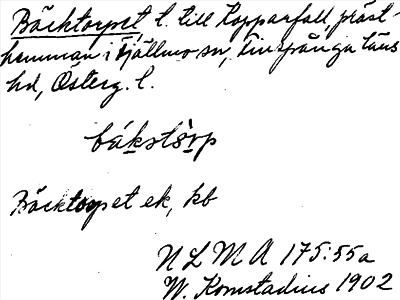 Bäcktorpet l. till Kopparfall, präst-
hemman i Tjällmo sn, Finspånga läns
hd, Österg. l.
bákstòrp
Bäcktorpet ek, kb
N L M A 175:55a
W. Komstadius 1902